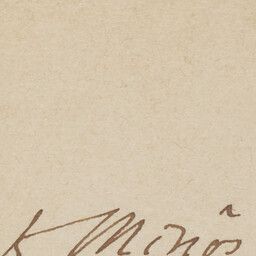 K Minôs